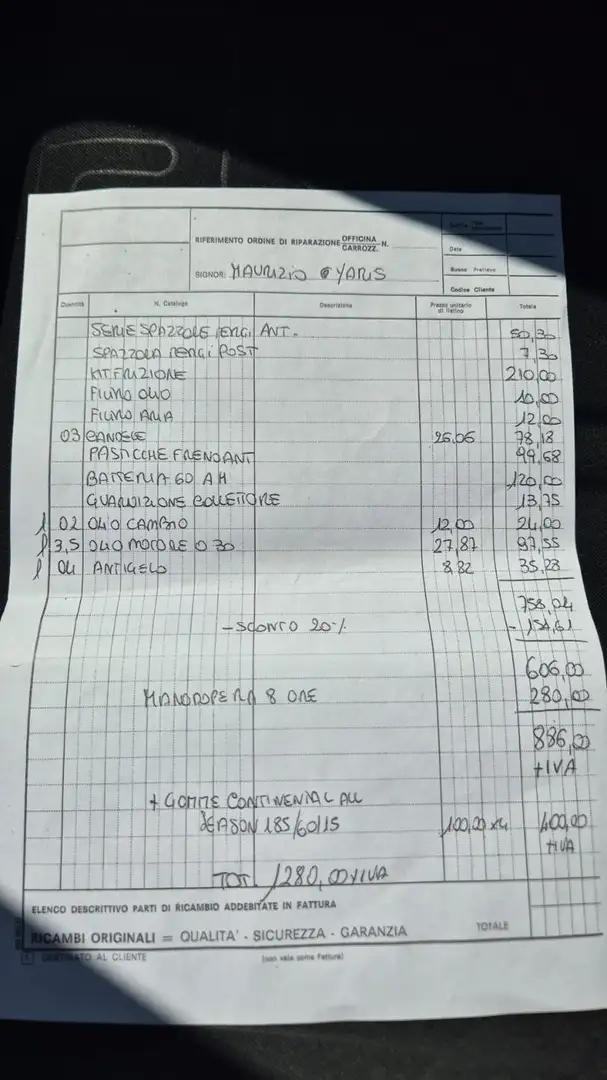 RIFERIMENTO ORDINE DI RIPARAZIONE OFFICINA CARROZZ. N.
Data
SIGNOR: MAURIZIO YARIS
Buono Prelievo
Codice Cliente
Quantità N. Catalogo Descrizione Prezzo unitario di listino Totale
SERIE SPAZZOLE TERGI ANT. 50,30
SPAZZOLA TERGI POST 7,30
KIT FRIZIONE 210,00
FILTRO OLIO 10,00
FILTRO ARIA 12,00
03 CANDELE 26,06 78,18
PASTICCHE FRENO ANT 99,68
BATTERIA 60 AH 120,00
GUARNIZIONE COLLETTORE 13,75
l 02 OLIO CAMBIO 12,00 24,00
l 3,5 OLIO MOTORE 0 30 27,87 97,55
l 04 ANTIGELO 8,82 35,28
758,04
- SCONTO 20% - 151,61
606,00
MANODOPERA 8 ORE 280,00
886,00
+IVA
+ GOMME CONTINENTAL ALL
SEASON 185/60/15 100,00 x4 400,00
+IVA
TOT. 1280,00+IVA
ELENCO DESCRITTIVO PARTI DI RICAMBIO ADDEBITATE IN FATTURA
RICAMBI ORIGINALI = QUALITA' - SICUREZZA - GARANZIA TOTALE
AL CLIENTE (non vale come Fattura)